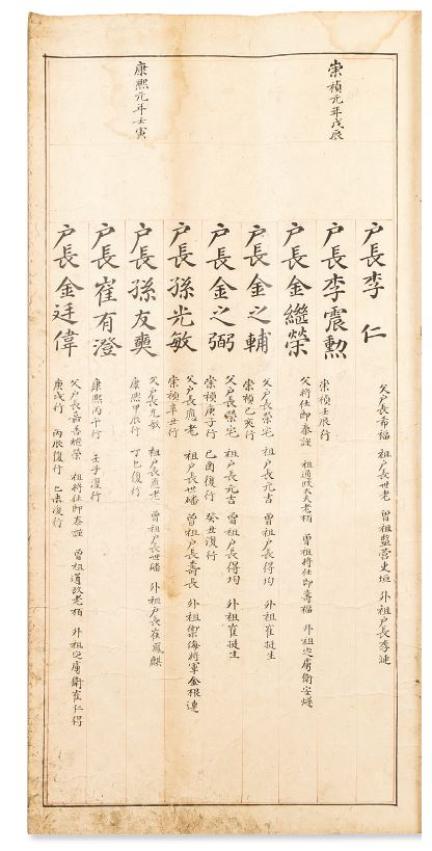 崇禎元年戊辰
康熙元年壬寅
戶長李仁
父戶長希福 祖戶長世老 曾祖監營吏垣 外祖戶長李漣
戶長李震勲
崇禎壬辰行
戶長金繼榮
父將仕郎泰謹 祖通政大夫老栢 曾祖將仕郎壽福 外祖定虜衛安
戶長金之輔
父戶長榮宅 祖戶長元吉 曾祖戶長得均 外祖崔挺生
崇禎乙亥行
戶長金之弼
父戶長榮宅 祖戶長元吉 曾祖戶長得均 外祖崔挺生
崇禎庚子行 己酉復行 癸丑復行
戶長孫光敏
父戶長應老 祖戶長世蟠 曾祖戶長壽長 外祖禦侮將軍金根連
崇禎辛丑行
戶長孫友奭
父戶長光敏 祖戶長應老 曾祖戶長世蟠 外祖戶長崔鳳麒
康熙甲辰行 丁巳復行
戶長崔有澄
康熙丙午行 壬子復行
戶長金廷偉
父戶長嘉善繼榮 祖將仕郎泰謹 曾祖通政老栢 外祖定虜衛崔仁得
庚戌行 丙辰復行 己未復行